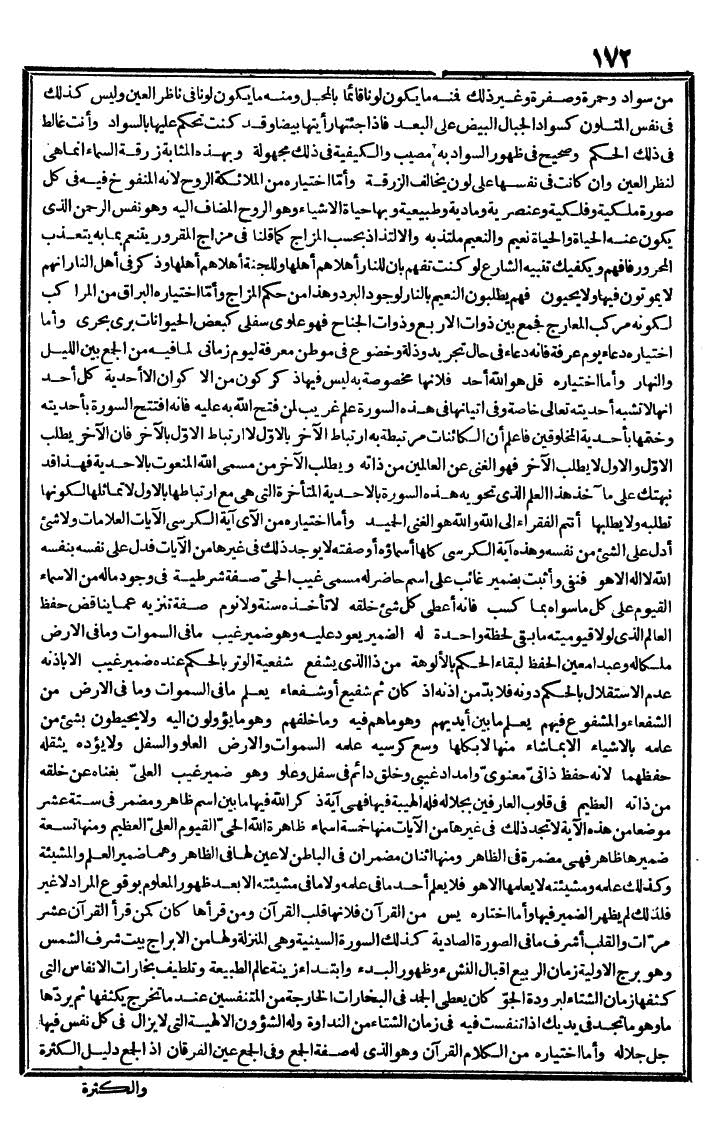 ١٧٢
من سواد وحمرة وصفرة وغير ذلك فنه ما يكون لونا قائما بالمحل ومنه ما يكون لونا فى ناظر العين وليس كذلك
فى نفس المتلون كسواد الجبال البيض على البعد فاذا جئتها رأيتها بيضا وقد كنت تحكم عليها بالسواد وأنت غالط
فى ذلك الحكم وصحيح فى ظهور السواد به مصيب والكيفية فى ذلك مجهولة وبهذه المثابة زرقة السماء انما هى
لنظر العين وان كانت فى نفسها على لون يخالف الزرقة وأما اختياره من الملائكة الروح لانه المنفوخ فيه فى كل
صورة ملكية وفلكية وعنصرية ومادية وطبيعية وبها حياة الاشياء وهو الروح المضاف اليه وهو نفس الرحمن الذى
يكون عنه الحياة والحياة نعيم والنعيم ملتذبه والالتذاذ بحسب المزاج كما قلنا فى مزاج المقرور يتنعم بما به يتعذب
المحرور فافهم ويكفيك تنبيه الشارع لو كنت تفهم بان للنار أهلا هم أهلها وللجنة أهلا هم أهلها وذكر فى أهل النار انهم
لا يموتون فيها ولا يحيون فهم يطلبون النعيم بالنار لوجود البرد وهذا من حكم المزاج وأما اختياره البراق من المراكب
لكونه مركب المعارج فجمع بين ذوات الاربع وذوات الجناح فهو علوى سفلى كبعض الحيوانات برى بحرى وأما
اختياره دعاء يوم عرفة فانه دعاء فى حال تجريد وذلة وخضوع فى موطن معرفة ليوم زمانى لما فيه من الجمع بين الليل
والنهار وأما اختياره قل هو الله أحد فلانها مخصوصة به ليس فيها ذكر كون من الاكوان الا أحدية كل أحد
انها لا تشبه أحديته تعالى خاصة وفى اتيانها فى هذه السورة علم غريب لمن فتح الله به عليه فانه افتتح السورة بأحديته
وختمها بأحدية المخلوقين فاعلم أن الكائنات مرتبطة به ارتباط الآخر بالاوّل لا ارتباط الاوّل بالآخر فان الآخر يطلب
الاوّل والاول لا يطلب الآخر فهو الغنى عن العالمين من ذاته ويطلب الآخر من مسمى الله المنعوت بالاحدية فهذا قد
نبهتك على مآخذ هذا العلم الذى تحويه هذه السورة بالاحدية المتأخرة التى هى مع ارتباطها بالاول لا تماثلها لكونها
تطلبه ولا يطلبها أنتم الفقراء الى الله والله هو الغنى الحميد وأما اختياره من الآى آية الكرسى الآيات العلامات ولا شئ
أدل على الشئ من نفسه وهذه آية الكرسى كلها أسماؤه أو صفته لا يوجد ذلك فى غيرها من الآيات فدل على نفسه بنفسه
الله لا اله الا هو فنفى وأثبت بضمير غائب على اسم حاضر له مسمى غيب الحىّ صفة شرطية فى وجود ماله من الاسماء
القيوم على كل ما سواه بما كسب فانه أعطى كل شئ خلقه لا تأخذه سنة ولا نوم صفة تنزيه عما يناقض حفظ
العالم الذى لولا قيوميته ما بقى لحظة واحدة له الضمير يعود عليه وهو ضمير غيب ما فى السموات وما فى الارض
ملكاله وعبدا معين الحفظ لبقاء الحكم بالألوهة من ذا الذى يشفع شفعية الوتر بالحكم عنده ضمير غيب الا باذنه
عدم الاستقلال بالحكم دونه فلا بدّ من اذنه اذ كان ثم شفيع أو شفعاء يعلم ما فى السموات وما فى الارض من
الشفعاء والمشفوع فيهم يعلم ما بين أيديهم وهو ما هم فيه وما خلفهم وهو ما يؤولون اليه ولا يحيطون بشئ من
علمه بالاشياء الا بما شاء منها لا بكلها وسع كرسيه علمه السموات والارض العلو والسفل ولا يؤده يثقله
حفظهما لانه حفظ ذاتىّ معنوىّ وامداد غيبى وخلق دائم فى سفل وعلو وهو ضمير غيب العلىّ بغناه عن خلقه
من ذاته العظيم فى قلوب العارفين بجلاله فله الهيبة فيها فهى آية ذكر الله فيها ما بين اسم ظاهر ومضمر فى ستة عشر
موضعا من هذه الآية لا تجد ذلك فى غيرها من الآيات منها خمسة اسماء ظاهرة الله الحىّ القيوم العلىّ العظيم ومنها تسعة
ضميرها ظاهر فهى مضمرة فى الظاهر ومنها اثنان مضمران فى الباطن لا عين لها فى الظاهر وهما ضمير العلم والمشيئة
وكذلك علمه ومشيئته لا يعلمها الا هو فلا يعلم أحد ما فى علمه ولا ما فى مشيئته الا بعد ظهور المعلوم بوقوع المراد لا غير
فلذلك لم يظهر الضمير فيها وأما اختاره يس من القرآن فلانها قلب القرآن ومن قرأها كان كمن قرأ القرآن عشر
مرّات والقلب أشرف ما فى الصورة الصادية كذلك السورة السينية وهى المنزلة ولها من الابراج بيت شرف الشمس
وهو برج الاولية زمان الربيع اقبال النشء وظهور البدء وابتداء زينة عالم الطبيعة وتلطيف بخارات الانفاس التى
كثفها زمان الشتاء لبرودة الجوّ كان يعطى الجمد فى البخارات الخارجة من المتنفسين عند ما تخرج يكثفها ثم يردّها
ماء وهو ما تجد فى يديك اذا تنفست فيه فى زمان الشتاء من النداوة وله الشؤون الالهية التى لا يزال فى كل نفس فيها
جل جلاله وأما اختياره من الكلام القرآن وهو الذى له صفة الجمع وفى الجمع عين الفرقان اذ الجمع دليل الكثرة
والكثرة